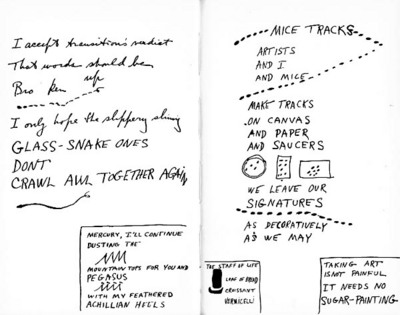 I accept transition's verdict
That words should been
Bro ken up
I only hope the slippery slimy
GLASS-SNAKE ONES
DONT
CRAWL AWL TOGETHER AGAIN
MERCURY, I'LL CONTINUE
DUSTING THE
MOUNTAIN TOPS FOR YOU AND
PEGASUS
WITH MY FEATHERED
ACHILLIAN HEELS
MICE TRACKS
ARTISTS
AND I
AND MICE
MAKE TRACKS
ON CANVAS
AND PAPER
AND SAUCERS
WE LEAVE OUR
SIGNATURES
AS DECORATIVELY
AS WE MAY
THE STAFF OF LIFE
LOAF OF BREAD
CROISSANT
VERMICELLI
TAKING ART
ISNT PAINFUL
IT NEEDS NO
SUGAR-PAINTING